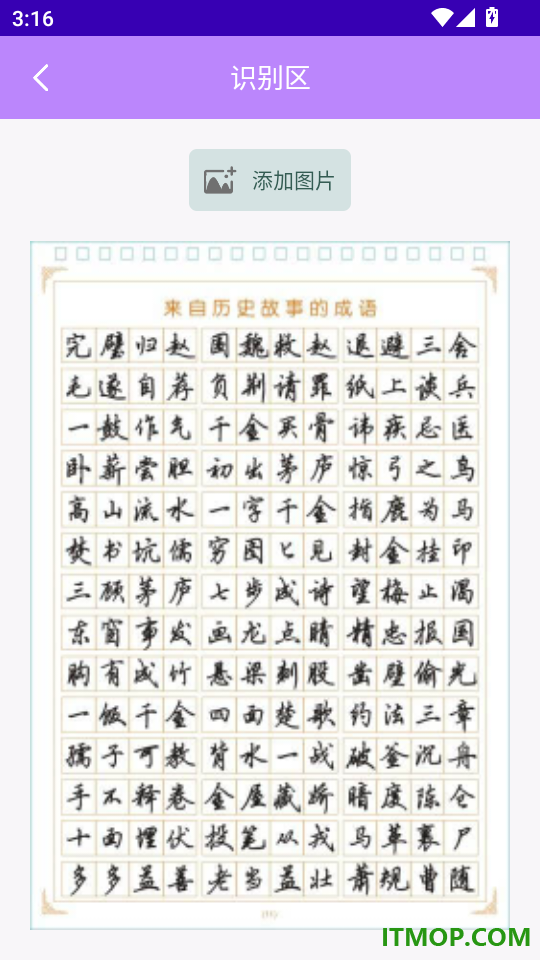 3:16
识别区
添加图片
来自历史故事的成语
完璧归赵 围魏救赵 退避三舍
毛遂自荐 负荆请罪 纸上谈兵
一鼓作气 千金买骨 讳疾忌医
卧薪尝胆 初出茅庐 惊弓之鸟
高山流水 一字千金 指鹿为马
焚书坑儒 穷图匕见 封金挂印
三顾茅庐 七步成诗 望梅止渴
东窗事发 画龙点睛 精忠报国
胸有成竹 悬梁刺股 凿壁偷光
一饭千金 四面楚歌 约法三章
孺子可教 背水一战 破釜沉舟
手不释卷 金屋藏娇 暗度陈仓
十面埋伏 投笔从戎 马革裹尸
多多益善 老当益壮 萧规曹随
ITMOP.COM